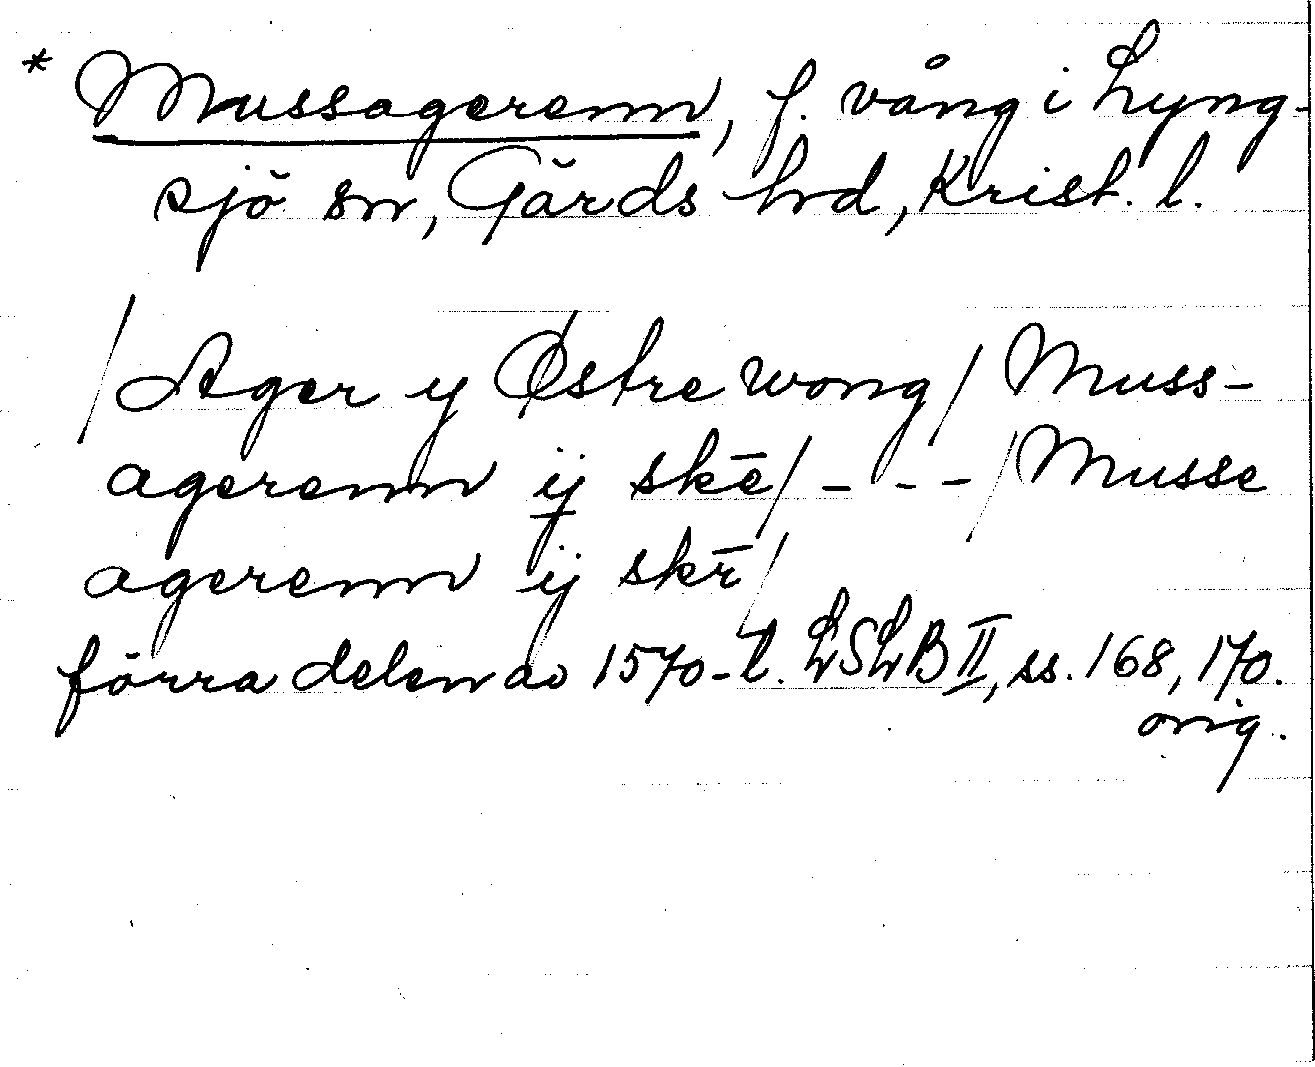 * Mussagerenn, f. vång i Lyng-
sjö sn, Gärds hrd, Krist. l.
/Ager y Østre wong/ Muss-
agerenn ij skē/ - - - /Musse
agerenn ij skr̄/
förra delen av 1570-t. LSLB II, ss. 168, 170.
orig.